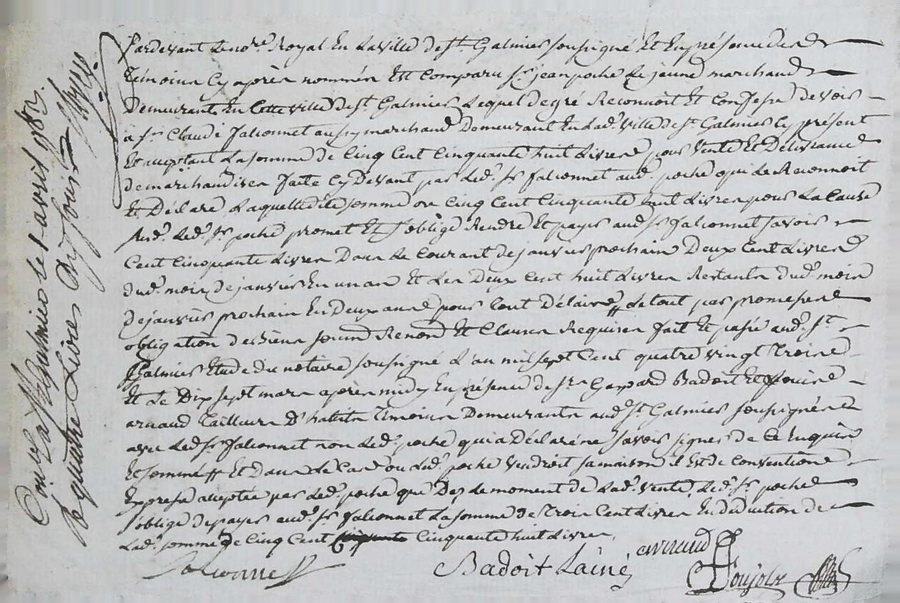 Pardevant Le no.re Royal En La ville de S.t Galmier soussigné Et En présence des
témoins Cy après nommés Est Comparu s.r jean poche Le jeune marchand
Demeurant En Cette ville de S.t Galmier Lequel de gré Reconnoit Et Confesse devoir
a s.r Claude falconnet aussy marchand Demeurant En Lad. ville de S.t Galmier Cy présent
Et acceptant La somme de Cinq Cent Cinquante huit Livres pour Vente Et Délivrance
de marchandises faite Cy Devant par Led. s.r falconnet aud. poche qui Le Reconnoit
Et Déclare Laquelle dite somme de Cinq Cent Cinquante huit Livres pour La Cause
Led. s.r poche promet Et s'oblige Rendre Et payer aud. s.r falconnet savoir
Cent Cinquante Livres Dans Le Courant de janvier prochain Deux Cent Livres
dud. mois de janvier En un an Et Les Deux Cent huit Livres Restants dud. mois
de janvier prochain En deux ans pour tout Délais Le tout par promesse
obligation de biens soum Renond Et Clauses Requises fait Et passé aud. S.t
Galmier Etude du notaire soussigné L'an mil sept Cent quatre vingt trois
Et Le Dix sept mars après midy En présence de s.r Gaspard Badoit Et
arnaud tailleur D'habits témoins Demeurants aud. S.t Galmier soussignés
avec Led. s.r falconnet non Led. poche qui a Déclaré ne savoir signer de Ce Enquis
Et sommé Et Dans Le Cas ou Led. poche Vendroit sa maison il Est de Convention
Expresse acceptée par Led. poche que Dès Le moment de Lad. Vente Led. s.r poche
s'oblige de payer aud. s.r falconnet La somme de trois Cent Livres En déduction de
Lad. somme de Cinq Cent Cinquante huit Livres
falconnet Badoit Lainé arnaud
Con.lé a S.t Galmier Le 1 avril 1783.
Rç quatre Livres